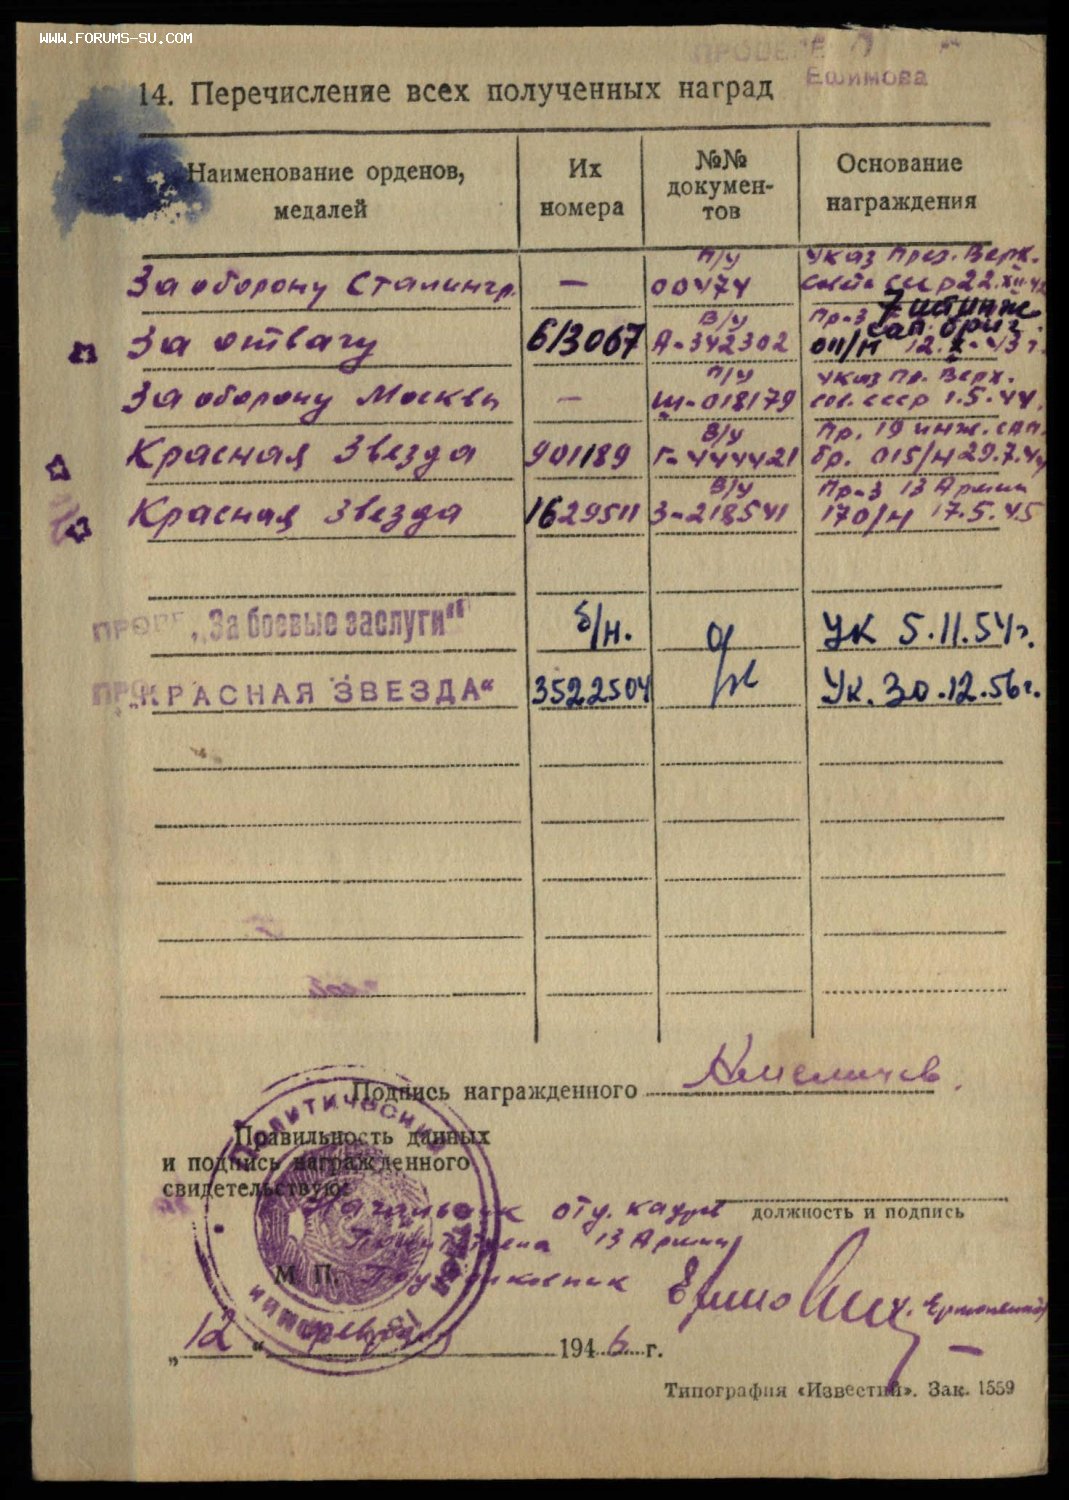 WWW.FORUMS-SU.COM
Ефимова
14. Перечисление всех полученных наград
Наименование орденов, медалей
Их номера
№№ документов
Основание награждения
За оборону Сталингр. — П/У 00474 Указ През. Верх. СССР 22.XII.42
За отвагу 613067 В/У А-342302 Пр-з 7 шт инж сап. бриг. 011/н 12.X-43 г.
За оборону Москвы — П/У Ш-018179 Указ Пр. Верх. Сов. СССР 1.5.44.
Красная Звезда 901189 В/У Г-444421 Пр. 19 инж. сап. бр. 015/н 29.7.44
Красная Звезда 1629511 В/У З-218541 Пр-з 13 Армии 170/н 17.5.45
„За боевые заслуги“ б/н. УК 5.11.54 г.
„КРАСНАЯ ЗВЕЗДА“ 3522504 Ук. 30.12.56 г.
Подпись награжденного
Правильность данных
и подпись награжденного
свидетельствую:
Начальник отд. кадров
должность и подпись
13 Армии
М. П. Подполковник
„12“ февраля 1946 г.
Типография «Известий». Зак. 1559